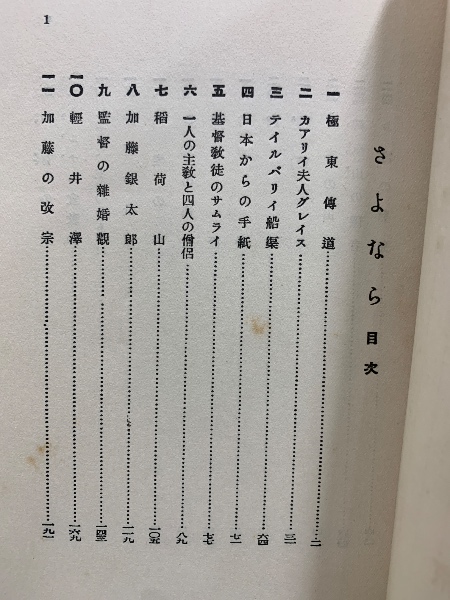 1
さよなら 目次
一 極東傳道……二
二 カアリイ夫人グレイス……三一
三 テイルバリイ船渠……六四
四 日本からの手紙……七一
五 基督敎徒のサムライ……七七
六 一人の主敎と四人の僧侶……八九
七 稻荷山……一〇五
八 加藤銀太郎……一一九
九 監督の雜婚觀……一四三
一〇 輕井澤……一六九
一一 加藤の改宗……一九一